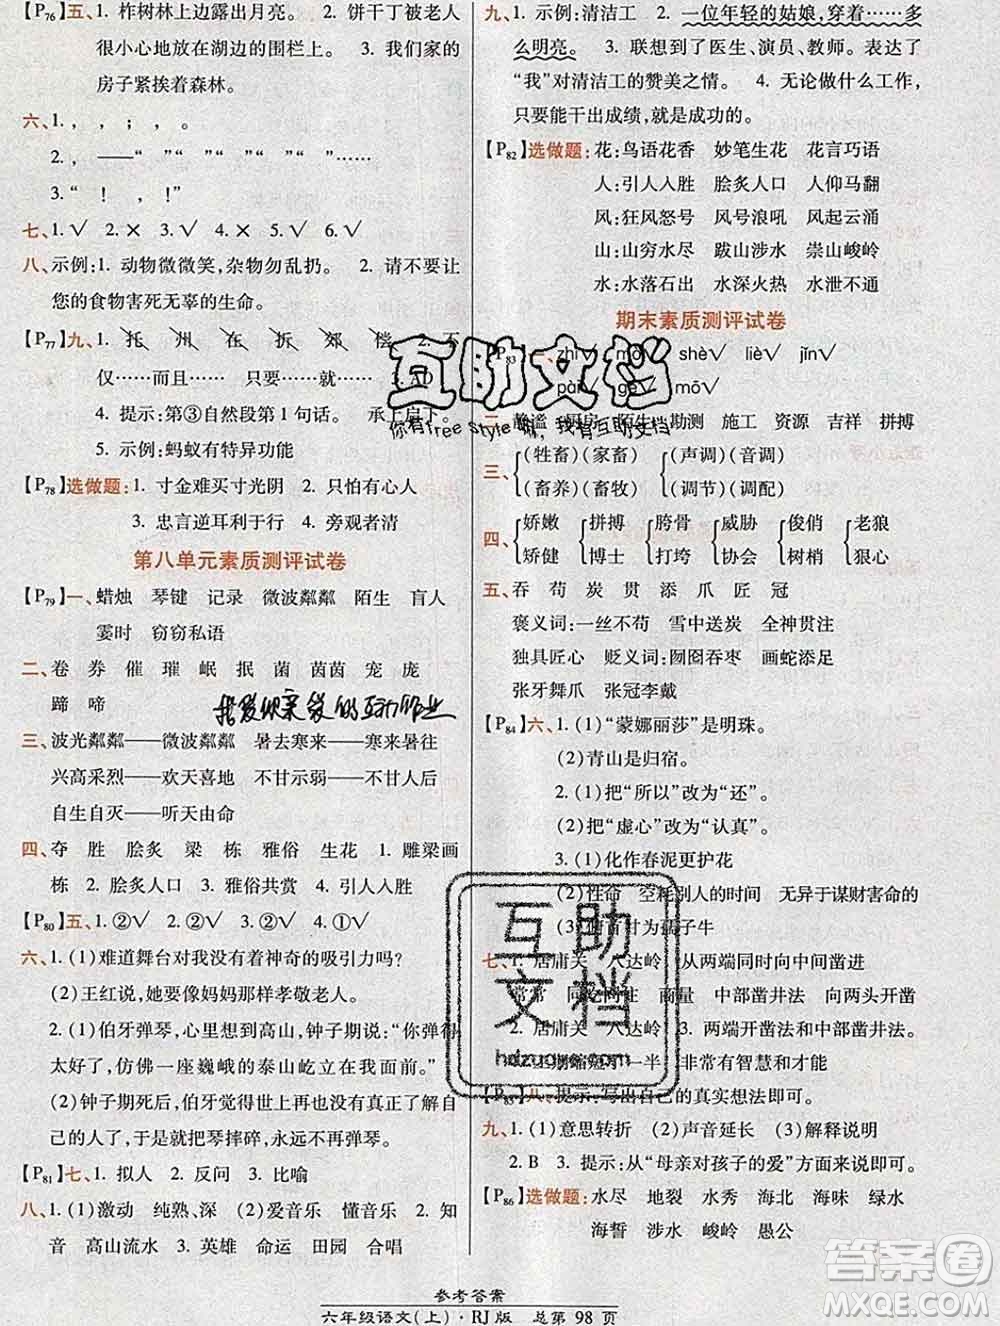 【P76】五、1. 柞树林上边露出月亮。 2. 饼干丁被老人
很小心地放在湖边的围栏上。 3. 我们家的
房子紧挨着森林。
六、1. ， ， ； ， 。
2. ， ——“ ” “ ” “ ” “ ” ……
3. “ ！ ， ！”
七、1. √ 2. × 3. √ 4. × 5. √ 6. √
八、示例:1. 动物微微笑,杂物勿乱扔。 2. 请不要让
您的食物害死无辜的生命。
【P77】九、1. 托 州 在 拆 郊 偿 2. 不
仅……而且 只要……就…… 3. AD
4. 提示:第③自然段第 1 句话。 承上启下。
5. 示例:蚂蚁有特异功能
【P78】选做题:1. 寸金难买寸光阴 2. 病魔怕有心人
3. 忠言逆耳利于行 4. 旁观者清
第八单元素质测评试卷
【P79】一、蜡烛 琴键 记录 微波粼粼 陌生 盲人
霎时 窃窃私语
二、卷 券 催 璀 岷 抿 菌 茵茵 宠 庞
蹄 啼
我爱你亲爱的互动作业
三、波光粼粼——微波粼粼 暑去寒来——寒来暑往
兴高采烈——欢天喜地 不甘示弱——不甘人后
自生自灭——听天由命
四、夺 胜 脍炙 梁 栋 雅俗 生花 1. 雕梁画
栋 2. 脍炙人口 3. 雅俗共赏 4. 引人入胜
【P80】五、1. ②√ 2. ②√ 3. ②√ 4. ①√
六、1. (1)难道舞台对我没有着神奇的吸引力吗?
(2)王红说,她要像妈妈那样孝敬老人。
2. (1)伯牙弹琴,心里想到高山,钟子期说:“你弹得
太好了,仿佛一座巍峨的泰山屹立在我面前。”
(2)钟子期死后,伯牙觉得世上再也没有了解自
己的人了,于是,就把琴摔碎,永远不再弹琴。
【P81】七、1. 拟人 2. 反问 3. 比喻
八、1. (1)激动 纯熟、深 (2)爱音乐 懂音乐 2. 知
音 高山流水 3. 英雄 命运 田园 合唱
九、1. 示例:清洁工 2. 一位年轻的姑娘,穿着……多
么明亮。 3. 联想到了医生、演员、教师。表达了
“我”对清洁工的赞美之情。 4. 无论做什么工作,
只要能干出成绩,就是成功的。
【P82】选做题:花:鸟语花香 妙笔生花 花言巧语
人:引人入胜 脍炙人口 人仰马翻
风:狂风怒号 风号浪吼 风起云涌
山:山穷水尽 跋山涉水 崇山峻岭
水:水落石出 水深火热 水泄不通
期末素质测评试卷
【P83】一、zhì√ mó√ shè√ liè√ jǐn√
pàn√ gē√ mō√
二、静谧 厨房 陌生 勘测 施工 资源 吉祥 拼搏
三、(牲畜)(家畜) (声调)(音调)
(畜养)(畜牧) (调节)(调配)
四、娇嫩 拼搏 胯骨 威胁 俊俏 老狼
矫健 博士 打垮 协会 树梢 狠心
五、吞 苟 炭 贯 添 爪 匠 冠
褒义词:一丝不苟 雪中送炭 全神贯注
独具匠心 贬义词:囫囵吞枣 画蛇添足
张牙舞爪 张冠李戴
【P84】六、1. (1)“蒙娜丽莎”是明珠。
(2)青山是归宿。
2. (1)把“所以”改为“还”。
(2)把“虚心”改为“认真”。
3. (1)化作春泥更护花
(2)性命 空耗别人的时间 无异于谋财害命的
(3)俯首甘为孺子牛
七、1. 居庸关 八达岭 从两端同时向中间凿进
常常 同文师生 商量 中部凿井法 向两头开凿
2. 居庸关 八达岭 两端开凿法和中部凿井法。
工期缩短了一半 非常有智慧和才能
【P85】八、提示:写出自己的真实想法即可。
九、1. (1)意思转折 (2)声音延长 (3)解释说明
2. B 3. 提示:从“母亲对孩子的爱”方面来说即可。
【P86】选做题:水尽 地裂 水秀 海北 海味 绿水
海誓 涉水 峻岭 愚公
参考答案
六年级语文(上)·RJ版 总第 98 页
互助文档
你有free style嘛,我有互助文档
互助文档
hdzuoye.com
答案圈
MXQE.COM